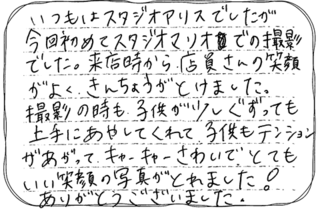 いつもはスタジオアリスでしたが
今回初めてスタジオマリオでの撮影
でした。来店時から、店員さんの笑顔
がよく、きんちょうがとけました。
撮影の時も、子供が少しぐずっても
上手にあやしてくれて、子供もテンション
があがって、キャーキャーさわいで、とても
いい笑顔の写真がとれました!
ありがとうございました.